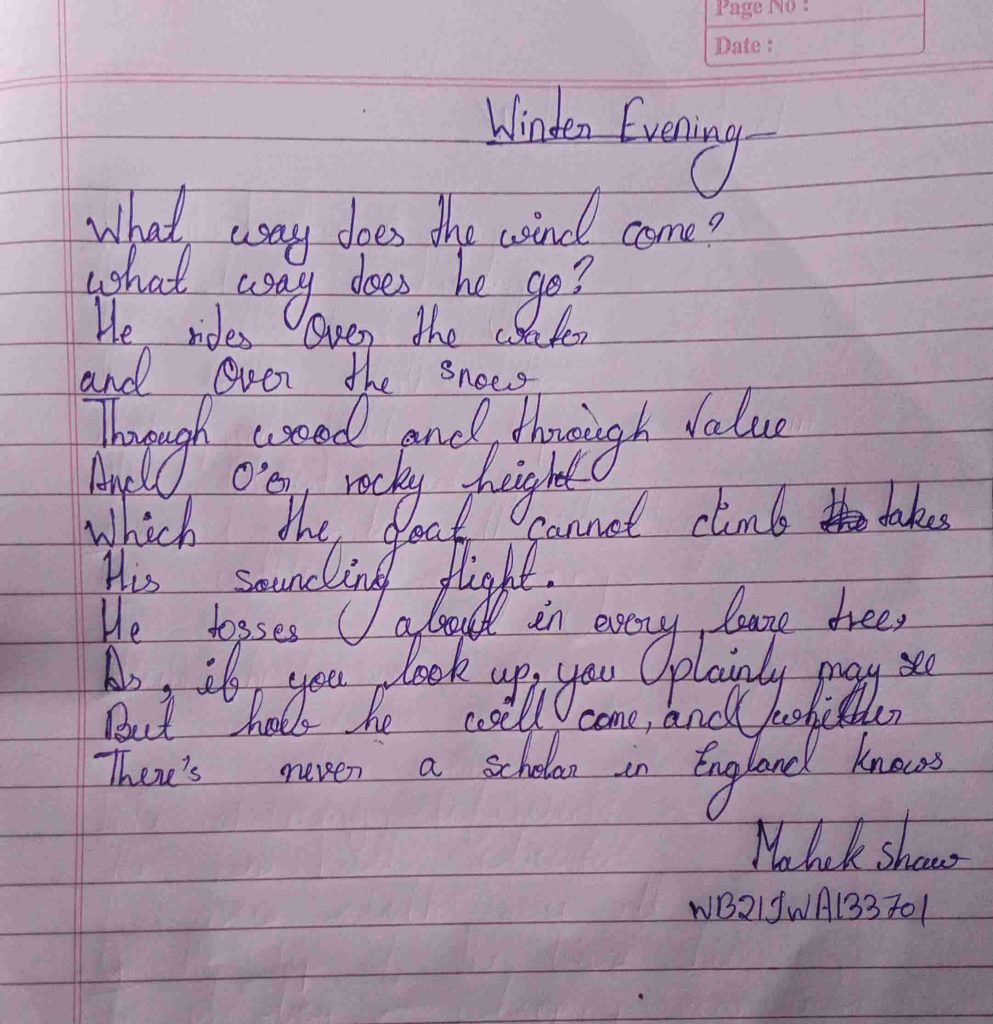 Page No :
Date :
Winter Evening
What way does the wind come?
what way does he go?
He rides Over the water
and Over the snow
Through wood and through Value
And O'er rocky height
Which the goat cannot climb takes
His sounding flight.
He tosses about in every bare tree,
As, if you look up, you plainly may see
But how he will come, and whither
There's never a scholar in England knows
Mahek Shaw
WB21SWA133701